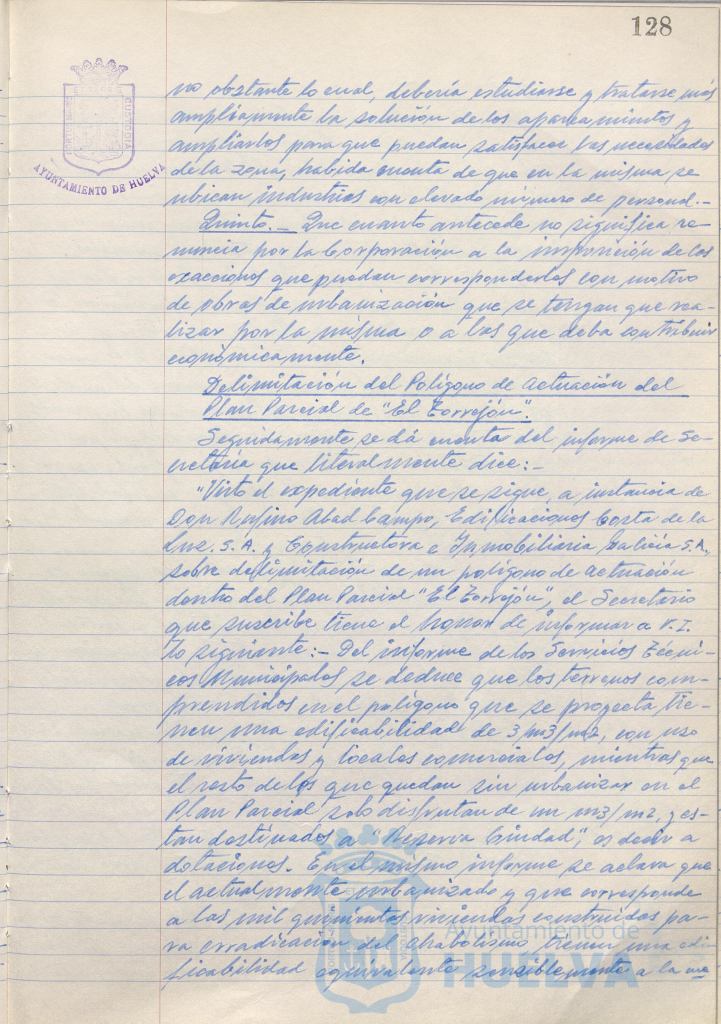 128
AYUNTAMIENTO DE HUELVA
no obstante lo cual, debería estudiarse y tratarse más
ampliamente la solución de los aparcamientos y
ampliarlos para que puedan satisfacer las necesidades
de la zona, habida cuenta de que en la misma se
ubican industrias con elevado número de personal.-
Quinto.- Que cuanto antecede no significa re-
nuncia por la Corporación a la imposición de las
exacciones que puedan corresponderles con motivo
de obras de urbanización que se tengan que rea-
lizar por la misma o a las que deba contribuir
económicamente.
Delimitación del Polígono de Actuación del
Plan Parcial de "El Torrejón".
Seguidamente se dá cuenta del informe de Se-
cretaría que literalmente dice:-
"Visto el expediente que se sigue, a instancia de
Don Rufino Abad Campo, Edificaciones Costa de la
Luz. S.A. y Constructora e Inmobiliaria Galicia S.A.,
sobre delimitación de un polígono de actuación
dentro del Plan Parcial "El Torrejón", el Secretario
que suscribe tiene el honor de informar a V.I.
lo siguiente:- Del informe de los Servicios Técni-
cos Municipales se deduce que los terrenos com-
prendidos en el polígono que se proyecta tie-
nen una edificabilidad de 3/m3/m2, con uso
de viviendas y locales comerciales, mientras que
el resto de los que quedan sin urbanizar en el
Plan Parcial solo disfrutan de un m3/m2, y es-
tan destinados a "Reserva Ciudad", es decir a
dotaciones. En el mismo informe se aclara que
el actualmente urbanizado y que corresponde
a las mil quinientas viviendas construidas pa-
ra erradicación del chabolismo tienen una edi-
ficabilidad equivalente sensiblemente a la me
Ayuntamiento de
HUELVA